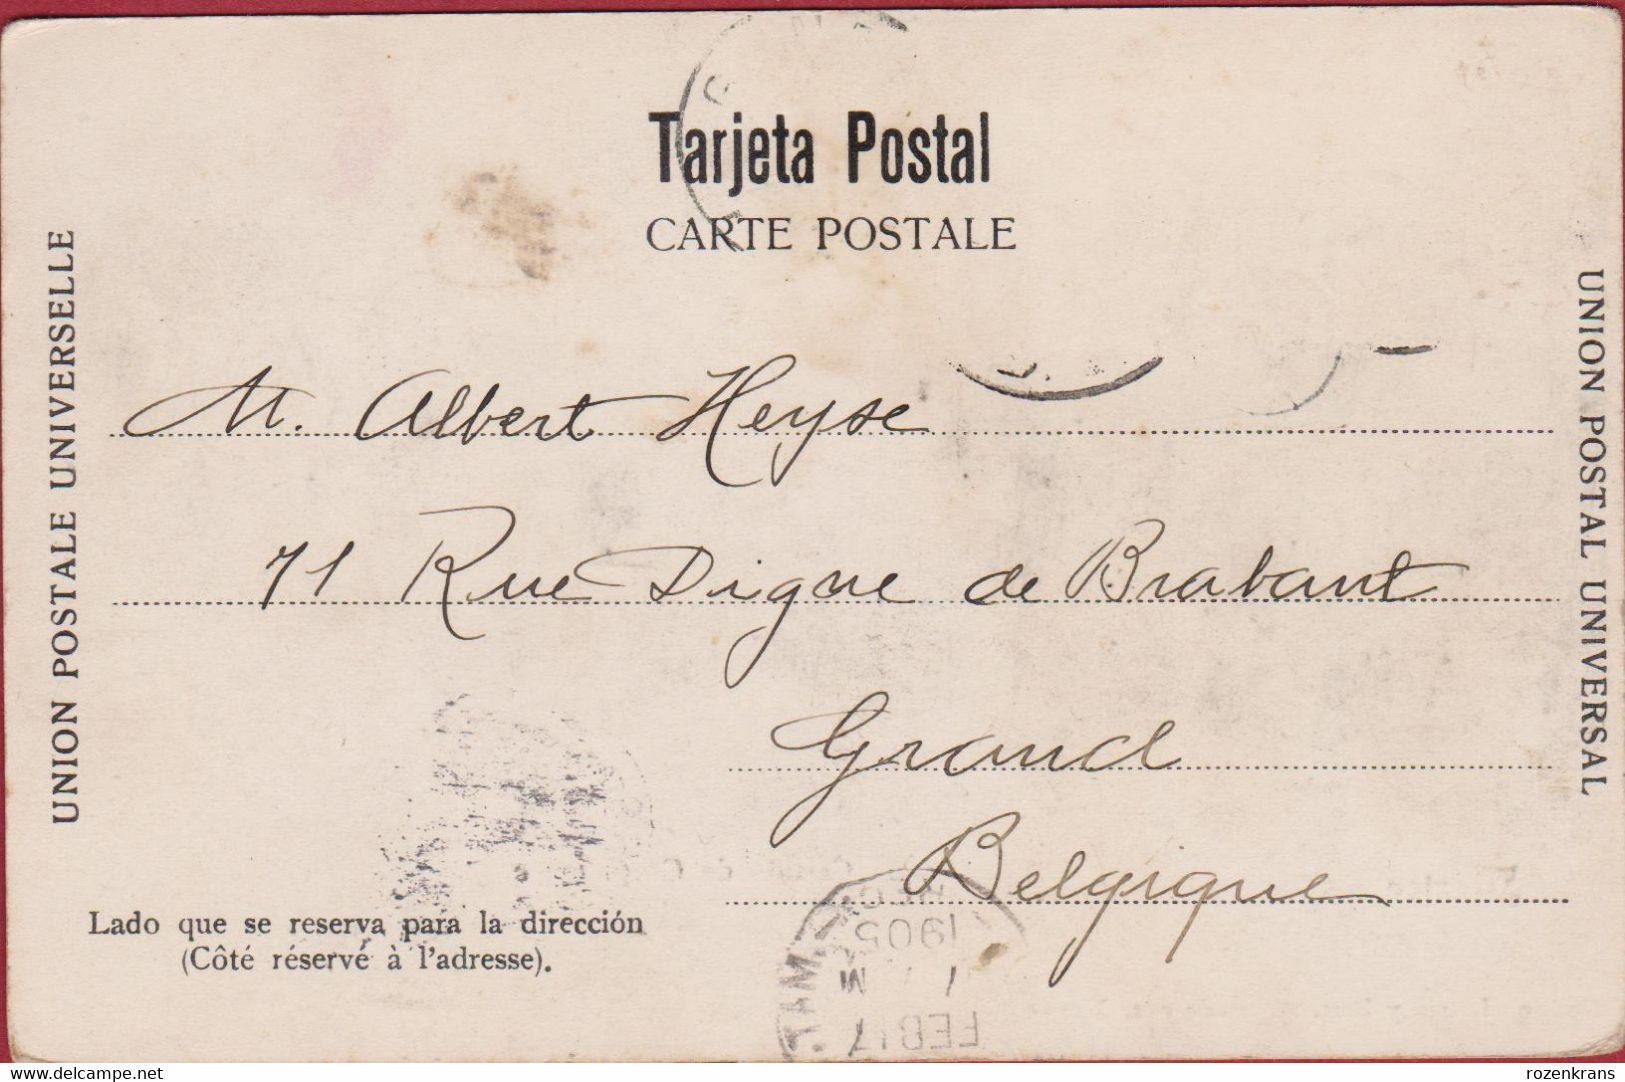 Tarjeta Postal
CARTE POSTALE
UNION POSTALE UNIVERSELLE
UNION POSTAL UNIVERSAL
M. Albert Heyse
71 Rue Digue de Brabant
Grand
Belgique
Lado que se reserva para la dirección
(Côté réservé à l'adresse).
1905
M
FEB 17
www.delcampe.net
rozenkrans